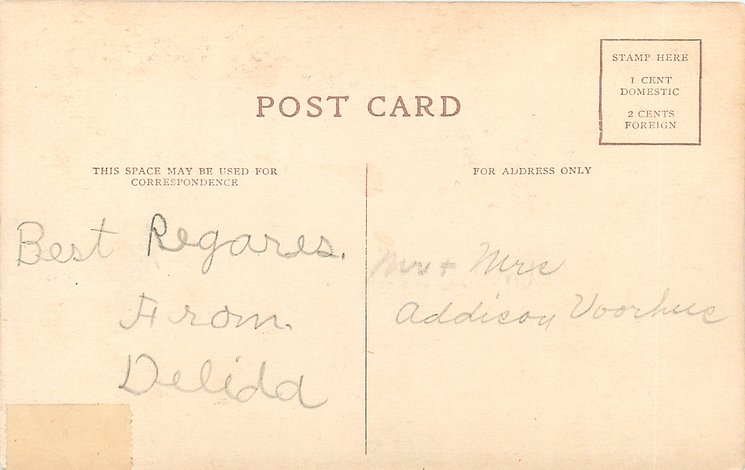 POST CARD
STAMP HERE
1 CENT
DOMESTIC
2 CENTS
FOREIGN
THIS SPACE MAY BE USED FOR
CORRESPONDENCE
Best Regares.
From.
Delida
FOR ADDRESS ONLY
Mr + Mrs
Addison Voorhees